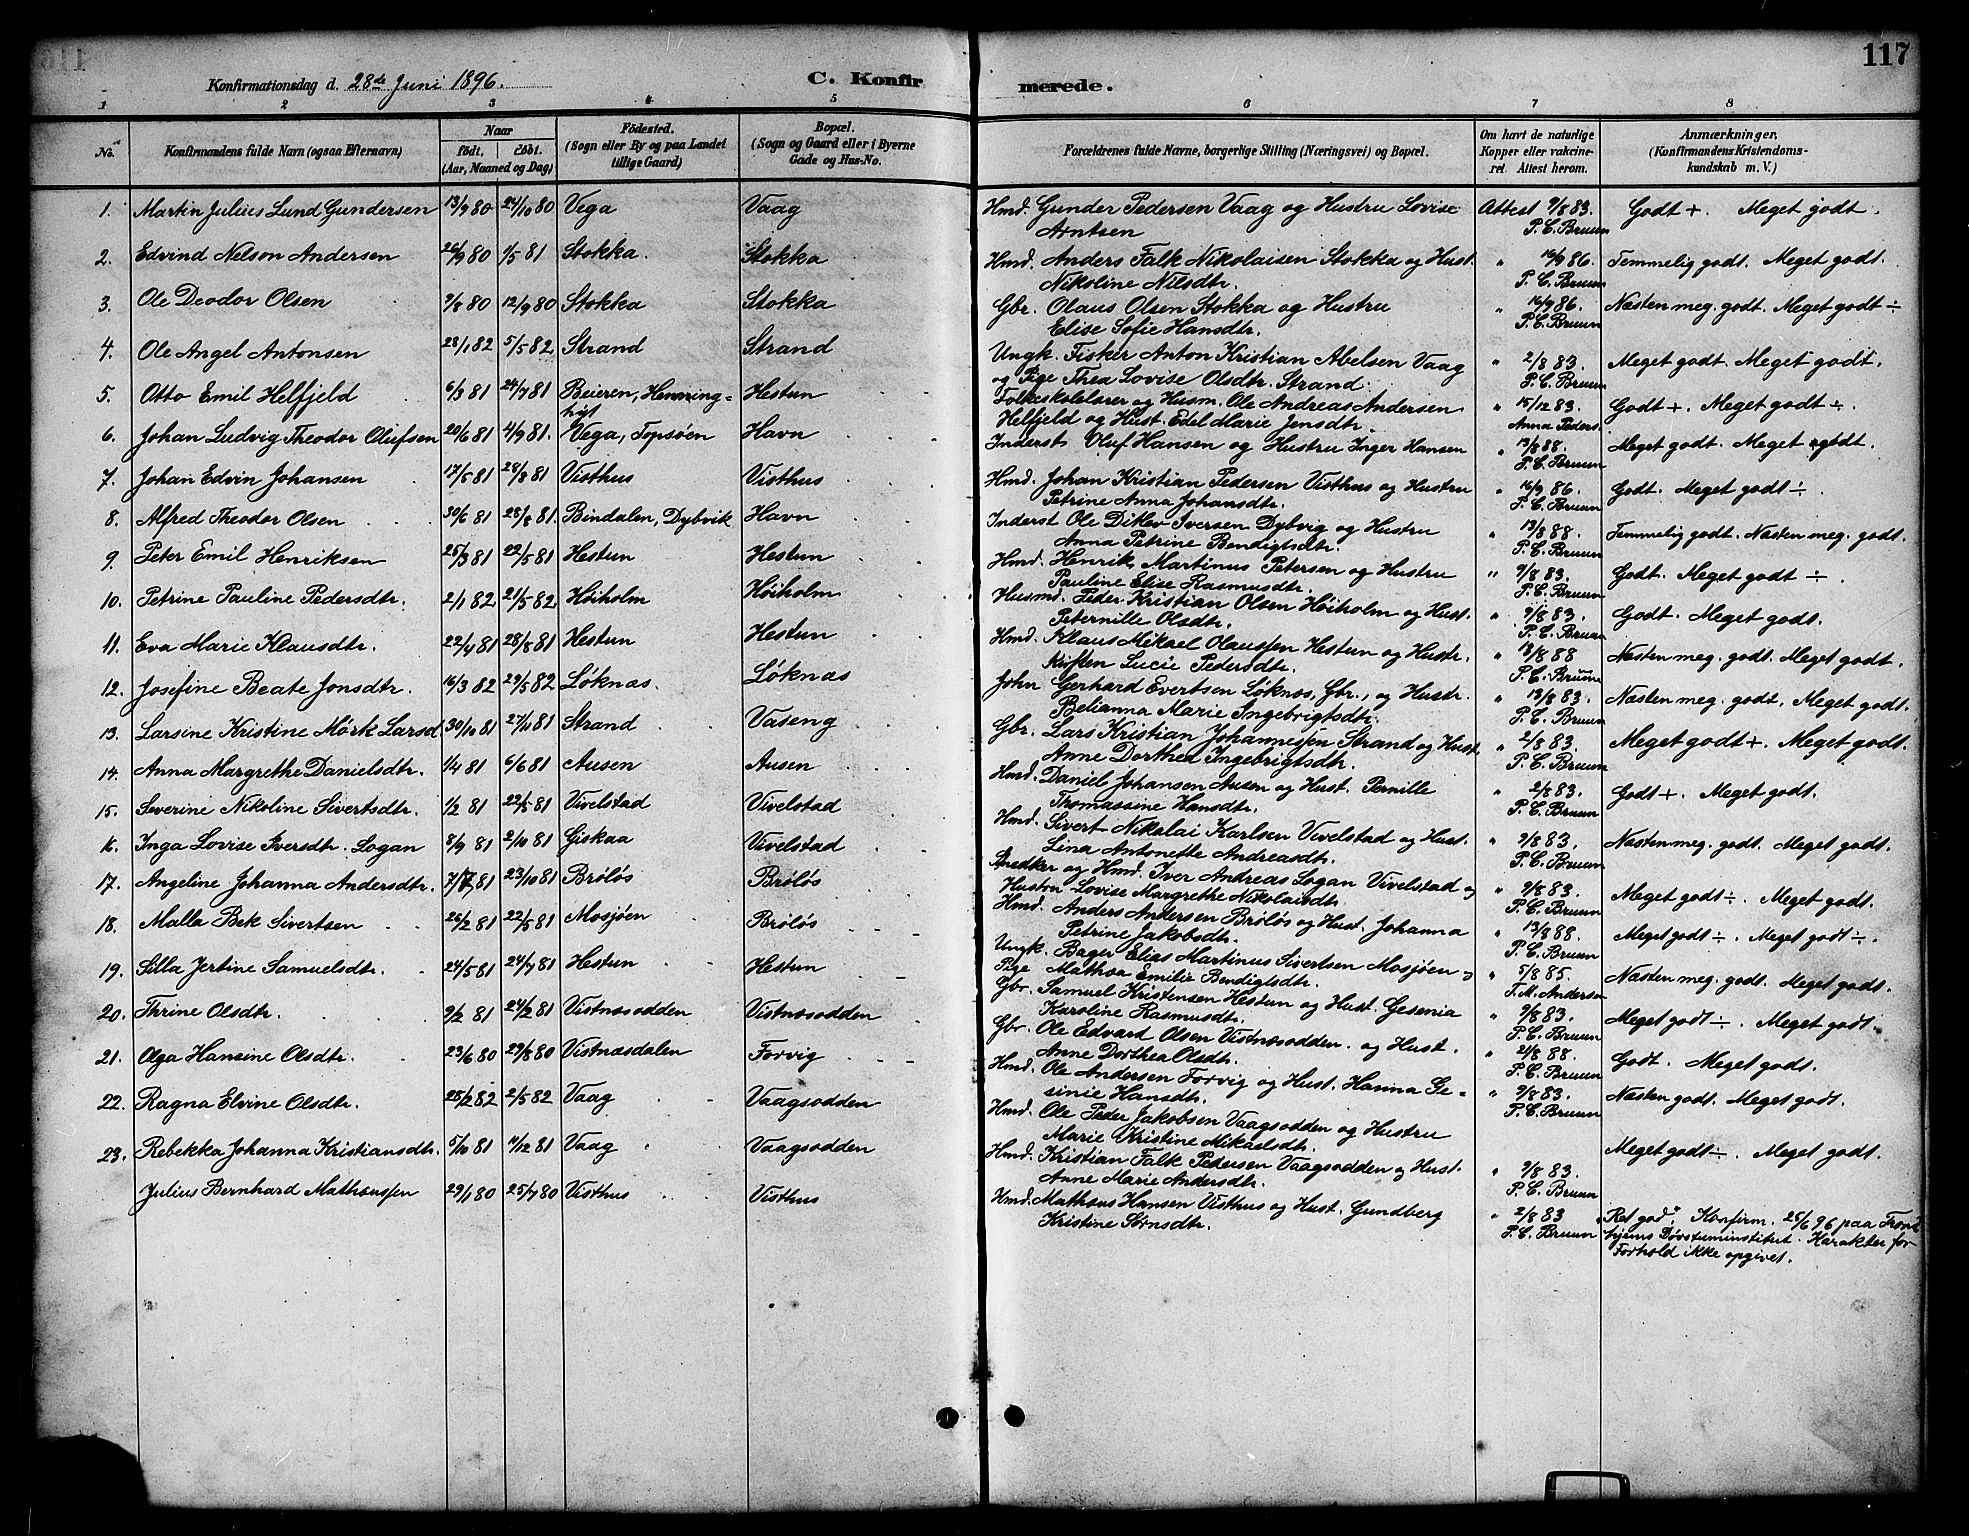 117
Konfirmationsdag d. 28de Juni 1896.
C. Konfirmerede.
1 2 3 4 5 6 7 8
No. Konfirmandens fulde Navn (ogsaa Efternavn) Naar født, døbt. (Aar, Maaned og Dag) Födested. (Sogn eller By og paa Landet tillige Gaard) Bopæl. (Sogn og Gaard eller i Byerne Gade og Hus-No. Forældrenes fulde Navne, borgerlige Stilling (Næringsvei) og Bopæl. Om havt de naturlige Kopper eller vakcineret. Attest herom. Anmærkninger, (Konfirmandens Kristendomskundskab m. V.)
1. Martin Julius Lund Gundersen 13/9 80 24/10 80 Vega Vaag Hmd. Gunder Pedersen Vaag og Hustru Lovise Arntsen Attest 9/8 83. P. C. Bruun Godt +. Meget godt.
2. Edvind Nelson Andersen 26/9 80 1/5 81 Stokka. Stokka Hmd. Anders Falk Nikolaisen Stokka og Hust. Nikoline Nilsdtr. " 16/9 86. P. C. Bruun Temmelig godt. Meget godt.
3. Ole Deodor Olsen 7/8 80 12/9 80 Stokka Stokka Gbr. Olaus Olsen Stokka og Hustru Elise Sofie Hansdtr. " 16/9 86. P. C. Bruun Næsten meg. godt. Meget godt ÷
4. Ole Angel Antonsen 28/1 82 5/5 82 Strand Strand Ungk. Fisker Anton Kristian Abelsen Vaag og Pige Thea Lovise Olsdtr. Strand. " 2/8 83. P. C. Bruun Meget godt. Meget godt.
5. Otto Emil Helfjeld 6/3 81 24/7 81 Beieren, Hestun Folkeskolelærer og Husm. Ole Andreas Andersen Helfjeld og Hust. Edel Marie Jensdtr. " 15/12 83. Anna Peders. Godt +. Meget godt ÷.
6. Johan Ludvig Theodor Olufsen 20/6 81 4/9 81. Vega, Topsøen Havn Inderst Oluf Hansen og Hustru Inger Hansen " 13/8 88. P. C. Bruun Meget godt. Meget godt.
7. Johan Edvin Johansen 17/5 81 28/8 81 Visthus Visthus Hmd. Johan Kristian Pedersen Visthus og Hustru Petrine Anna Johansdtr. " 16/9 86. P. C. Bruun Godt. Meget godt ÷.
8. Alfred Theodor Olsen 30/6 81 28/8 81. Bindalen, Dybvik Havn Inderst Ole Ditlev Iversen Dybvig og Hustru Anna Petrine Bendigtsdtr. " 13/8 88. P. C. Bruun Temmelig godt. Næsten meg. godt.
9. Peter Emil Henriksen 25/3 81 22/5 81 Hestun Hestun Hmd. Henrik Martinus Petersen og Hustru Pauline Elise Rasmusdtr. " 9/8 83. P. C. Bruun Godt. Meget godt ÷.
10. Petrine Pauline Pedersdtr. 2/1 82 21/5 82 Høiholm Høiholm Husmd. Peder Kristian Olsen Høiholm og Hust. Peternille Olsdtr. " 9/8 83. P. C. Bruun Godt. Meget godt.
11. Eva Marie Klausdtr. 22/4 81 28/8 81 Hestun Hestun Hmd. Klaus Mikael Olaussen Hestun og Hustr. Lucie Pedersdtr. " 13/8 88 P. C. Bruun Næsten meg. godt. Meget godt.
12. Josefine Beate Jonsdtr. 16/3 82 29/5 82 Løknæs. Løknæs John Gerhard Evertsen Løknæs, Gbr., og Hustr. Belianna Marie Ingebrigtsdtr. " 13/8 83. P. C. Bruun Næsten meg. godt. Meget godt.
13. Larsine Kristine Mørk Larsd. 30/10 81 27/11 81 Strand Vaseng Gbr. Lars Kristian Johannessen Strand og Hust. Anne Dorthea Ingebrigtsdtr. " 2/8 83. P. C. Bruun Meget godt +. Meget godt.
14. Anna Margrethe Danielsdtr. 1/4 81 6/6 81 Ausen Ausen Hmd. Daniel Johansen Ausen og Hust. Pernille Thomassine Hansdtr. " 2/8 83. P. C. Bruun Godt +. Meget godt.
15. Severine Nikoline Sivertsdtr. 1/2 81 22/5 81 Vivelstad Vivelstad Hmd. Sivert Nikolai Karlsen Vivelstad og Hust. Lina Antonette Andreasdtr. " 9/8 83. P. C. Bruun Næsten meg. godt. Meget godt.
16. Inga Lovise Iversdtr. Logan 8/9 81 2/10 81 Giskaa Vivelstad Snedker og Hmd. Iver Andreas Logan Vivelstad og Hustru Lovise Margrethe Nikolaisdtr. " 9/8 83. P. C. Bruun Meget godt ÷. Meget godt.
17. Angeline Johanna Andersdtr. 7/7 81 23/10 81 Brøløs Brøløs Hmd. Anders Andersen Brøløs og Hust. Johanna Petrine Jakobsdtr. " 13/8 88. P. C. Bruun Meget godt ÷. Meget godt ÷.
18. Malla Bek Sivertsen 26/2 81 22/5 81 Mosjøen Brøløs Ungk. Bager Elias Martinus Sivertsen Mosjøen og Pige Mathea Emilie Bendigtsdtr. " 5/8 85. T. M. Anderson Næsten meg. godt. Meget godt.
19. Silla Jertine Samuelsdtr. 24/5 81 24/7 81 Hestun Hestun Gbr. Samuel Kristensen Hestun og Hust. Gesenia Karoline Rasmusdtr. " 9/8 83. P. C. Bruun Meget godt ÷. Meget godt.
20. Thrine Olsdtr. 9/2 81 24/2 81 Vistnæsodden Vistnæsodden Gbr. Ole Edvard Olsen Vistnæsodden. og Hust. Anne Dorthea Olsdtr. " 2/8 88. P. C. Bruun Godt. Meget godt.
21. Olga Hansine Olsdtr. 23/6 80 29/8 80 Vistnæsdalen Forvig Hmd. Ole Andersen Forvig og Hust. Hanna Gesinie Hansdtr. " 9/8 83. P. C. Bruun Næsten godt. Meget godt.
22. Ragna Elvine Olsdtr. 28/2 82 2/5 82 Vaag Vaagsodden Hmd. Ole Peder Jakobsen Vaagsodden og Hustru Marie Kristine Mikaelsdtr. Meget godt ÷. Meget godt.
23. Rebekka Johanna Kristiansdtr. 5/10 81 4/12 81 Vaag Vaagsodden Hmd. Kristian Falk Pedersen Vaagsodden og Hust. Anne Marie Andersdtr. " 9/8 83. P. C. Bruun
Julius Bernhard Mathæussen 29/1 80 25/7 80 Visthus Visthus Hmd. Mathæus Hansen Visthus og Hust. Gundberg Kristine Sørnsdtr. " 2/8 83 P. C. Bruun "Ret god", Konfirm. 25/6 96 paa Trondhjems Døvstuminstitut. Karakter for Forhold ikke opgivet.